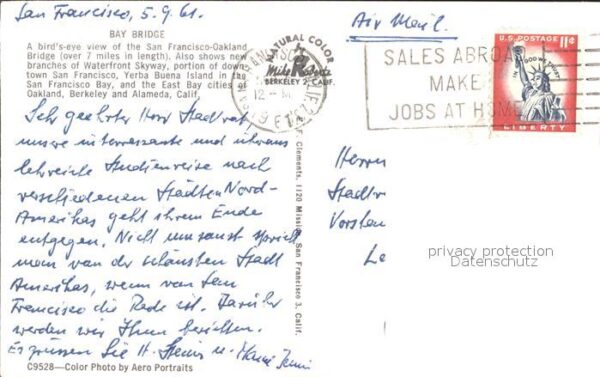 San Francisco, 5.9.61.
Air Mail.
BAY BRIDGE
A bird's-eye view of the San Francisco-Oakland
Bridge (over 7 miles in length). Also shows new
branches of Waterfront Skyway, portion of down
town San Francisco, Yerba Buena Island in the
San Francisco Bay, and the East Bay cities of
Oakland, Berkeley and Alameda, Calif.
NATURAL COLOR
Mike Roberts
BERKELEY 2, CALIF.
SALES ABROAD
MAKE
JOBS AT HOME
U.S. POSTAGE 11¢
IN GOD WE TRUST
LIBERTY
Sehr geehrter Herr Stadtrat
unsre interessante und überaus
lehrreiche Studienreise nach
verschiedenen Städten Nord-
Amerikas geht ihrem Ende
entgegen. Nicht umsonst spricht
man von der schönsten Stadt
Amerikas, wenn von San
Francisco die Rede ist. Darüber
werden wir Ihnen berichten.
Es grüssen Sie H. u.
F. Clements, 1120 Mission, San Francisco 3, Calif.
Herrn
Stadtr
Vorsten
Le
privacy protection
Datenschutz
C9528—Color Photo by Aero Portraits